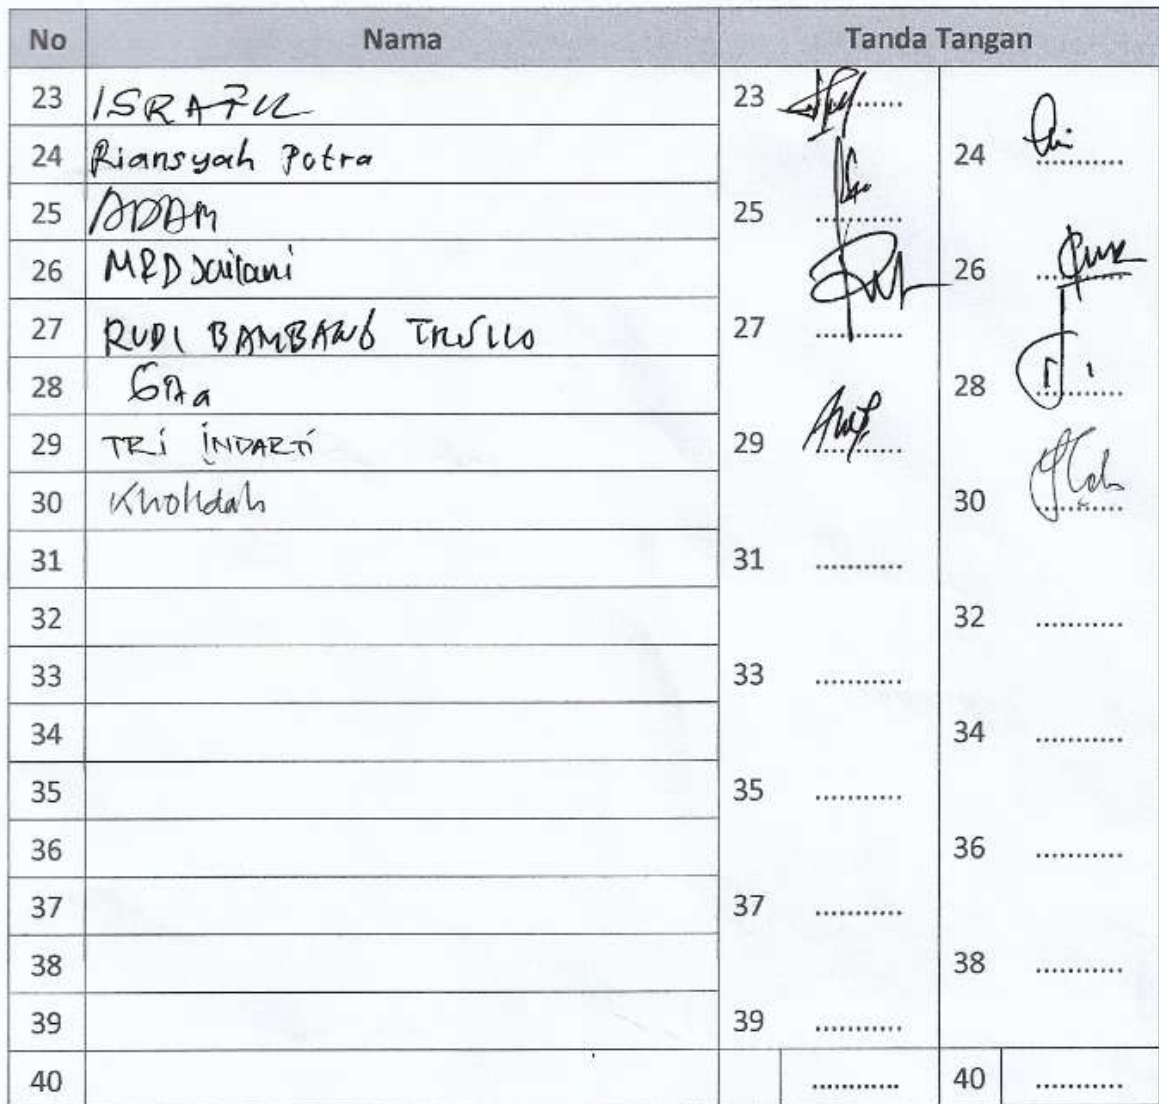 No Nama Tanda Tangan
23 23
24 Riansyah Putra 24
25 ADAM 25
26 MRD Jailani 26
27 RUDI BAMBANG 27
28 28
29 TRI INDARTI 29
30 Kholidah 30
31 31 ...........
32 32 ...........
33 33 ...........
34 34 ...........
35 35 ...........
36 36 ...........
37 37 ...........
38 38 ...........
39 39 ...........
40 ........... 40 ...........